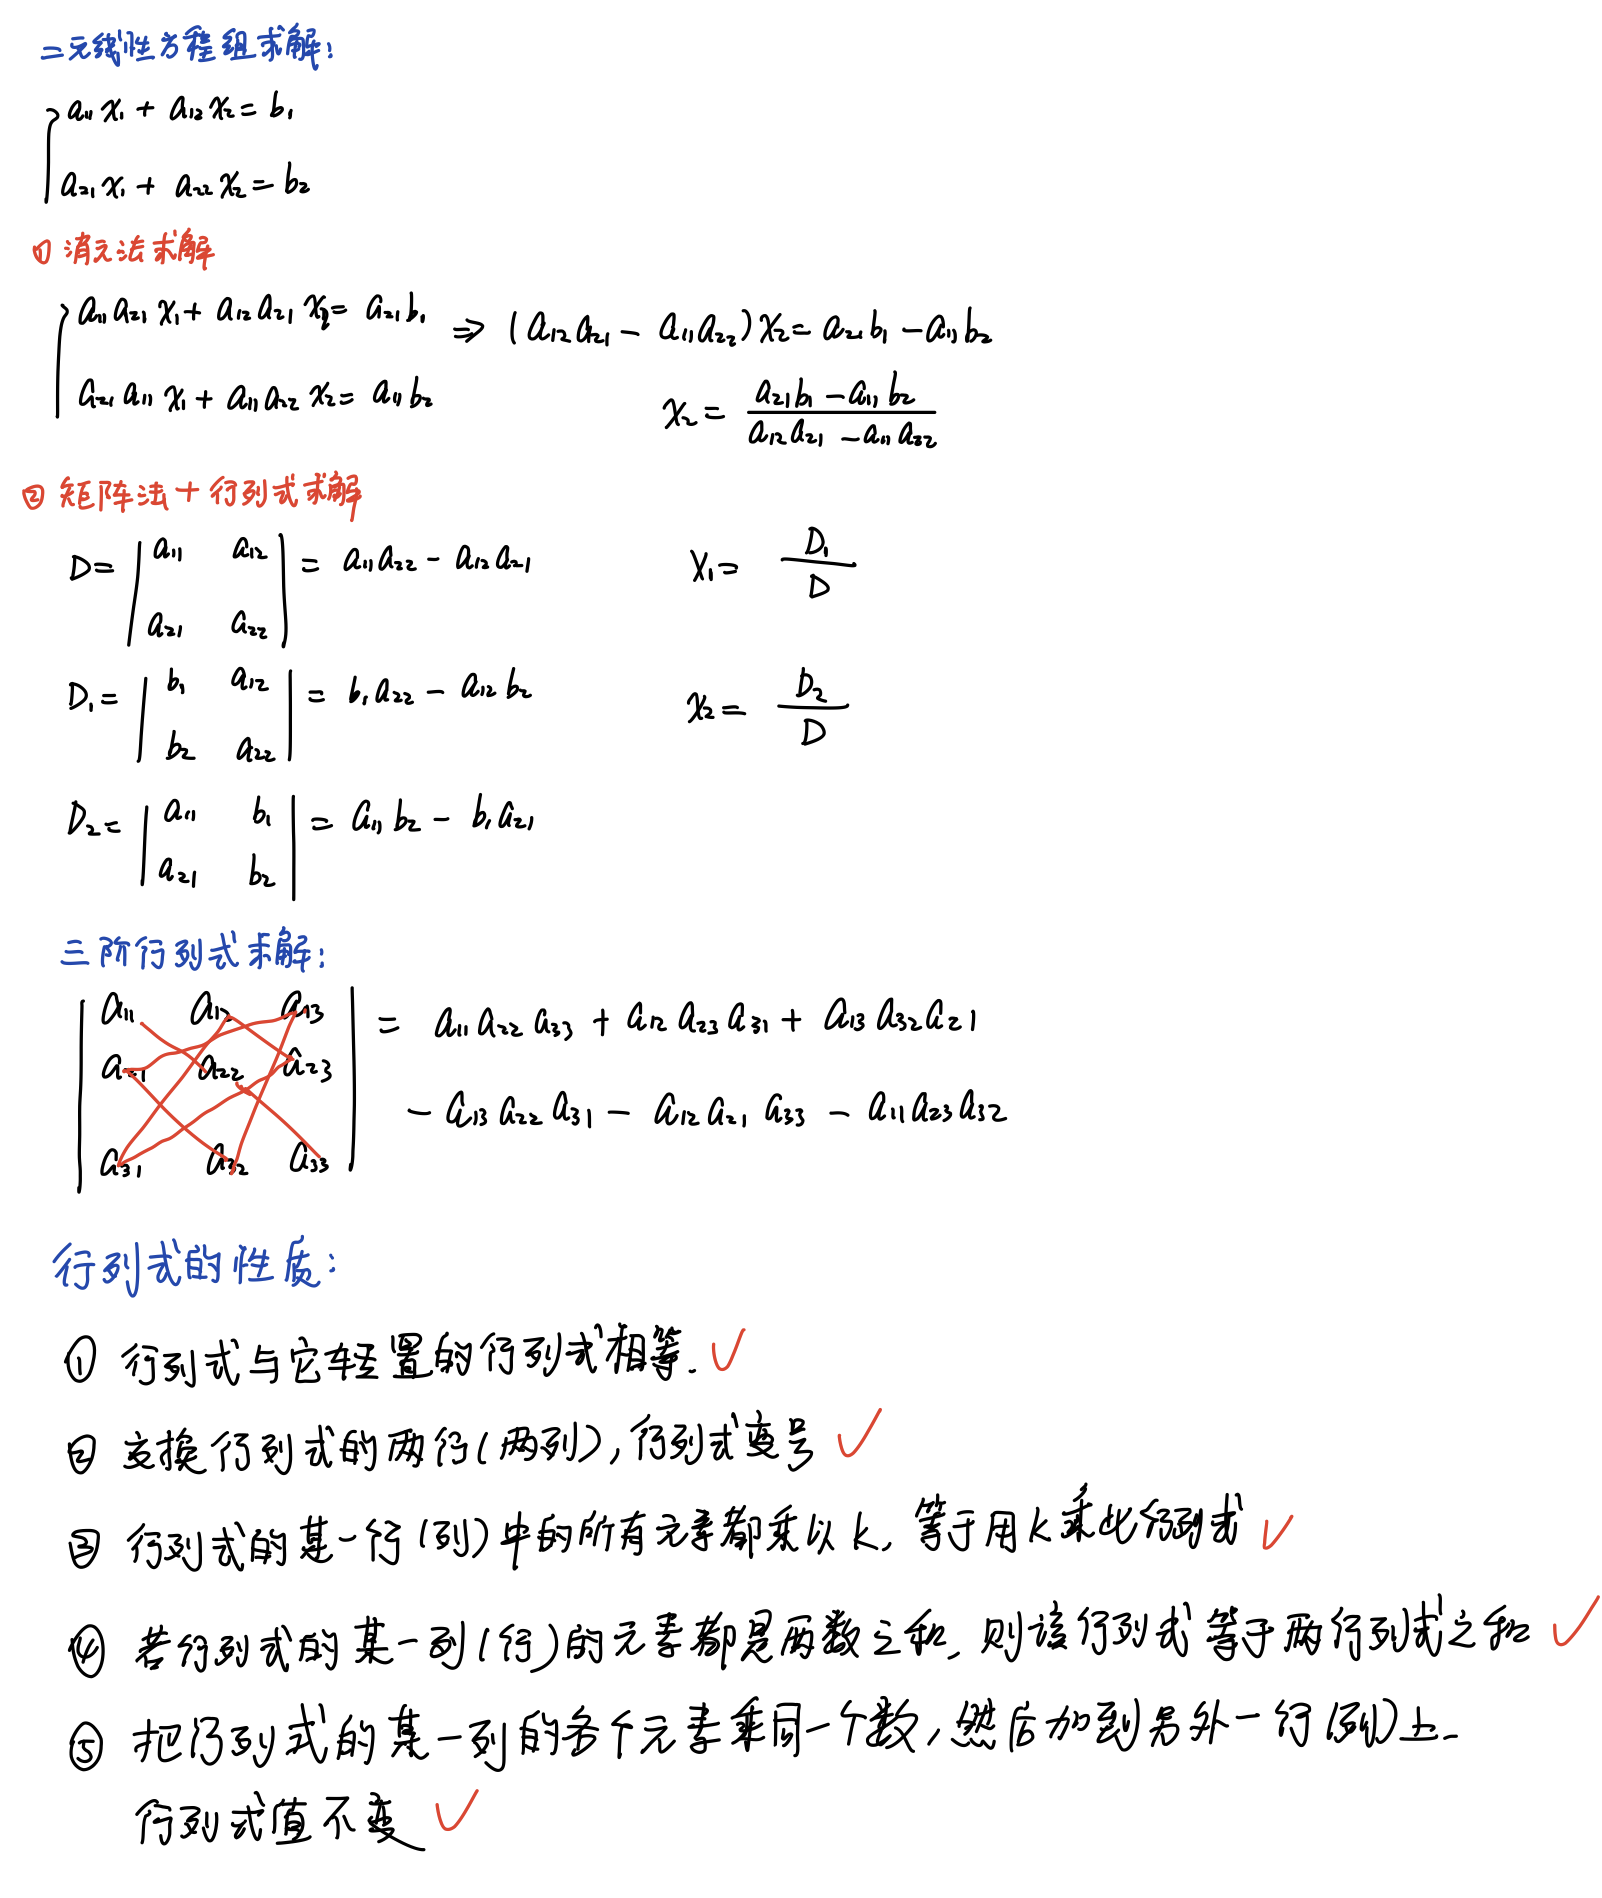 二元线性方程组求解:
a₁₁x₁ + a₁₂x₂ = b₁
a₂₁x₁ + a₂₂x₂ = b₂
① 消元法求解
a₁₁a₂₁x₁ + a₁₂a₂₁x₂ = a₂₁b₁ ⇒ (a₁₂a₂₁ - a₁₁a₂₂)x₂ = a₂₁b₁ - a₁₁b₂
a₂₁a₁₁x₁ + a₁₁a₂₂x₂ = a₁₁b₂
x₂ = (a₂₁b₁ - a₁₁b₂) / (a₁₂a₂₁ - a₁₁a₂₂)
② 矩阵法+行列式求解
D = | a₁₁ a₁₂ | = a₁₁a₂₂ - a₁₂a₂₁ x₁ = D₁ / D
| a₂₁ a₂₂ |
D₁ = | b₁ a₁₂ | = b₁a₂₂ - a₁₂b₂ x₂ = D₂ / D
| b₂ a₂₂ |
D₂ = | a₁₁ b₁ | = a₁₁b₂ - b₁a₂₁
| a₂₁ b₂ |
三阶行列式求解:
| a₁₁ a₁₂ a₁₃ | = a₁₁a₂₂a₃₃ + a₁₂a₂₃a₃₁ + a₁₃a₃₂a₂₁
| a₂₁ a₂₂ a₂₃ |
- a₁₃a₂₂a₃₁ - a₁₂a₂₁a₃₃ - a₁₁a₂₃a₃₂
| a₃₁ a₃₂ a₃₃ |
行列式的性质:
① 行列式与它转置的行列式相等. ✓
② 交换行列式的两行(两列), 行列式变号 ✓
③ 行列式的某一行(列)中的所有元素都乘以k, 等于用k乘此行列式 ✓
④ 若行列式的某一列(行)的元素都是两数之和, 则该行列式等于两行列式之和 ✓
⑤ 把行列式的某一列的各个元素乘同一个数, 然后加到另外一行(列)上
行列式值不变 ✓